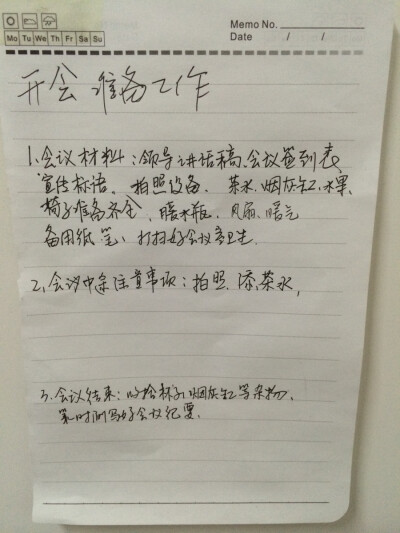 Memo No.
Mo Tu We Th Fr Sa Su
Date / /
开会准备工作
1、会议材料：领导讲话稿、会议签到表、
宣传标语。拍照设备、茶水、烟灰缸、水果、
椅子准备齐全、暖水瓶、风扇、暖气
备用纸笔、打扫好会议室卫生.
2、会议中途注意事项：拍照、添茶水、
3、会议结束：收拾杯子烟灰缸等杂物、
第时间写好会议纪要.